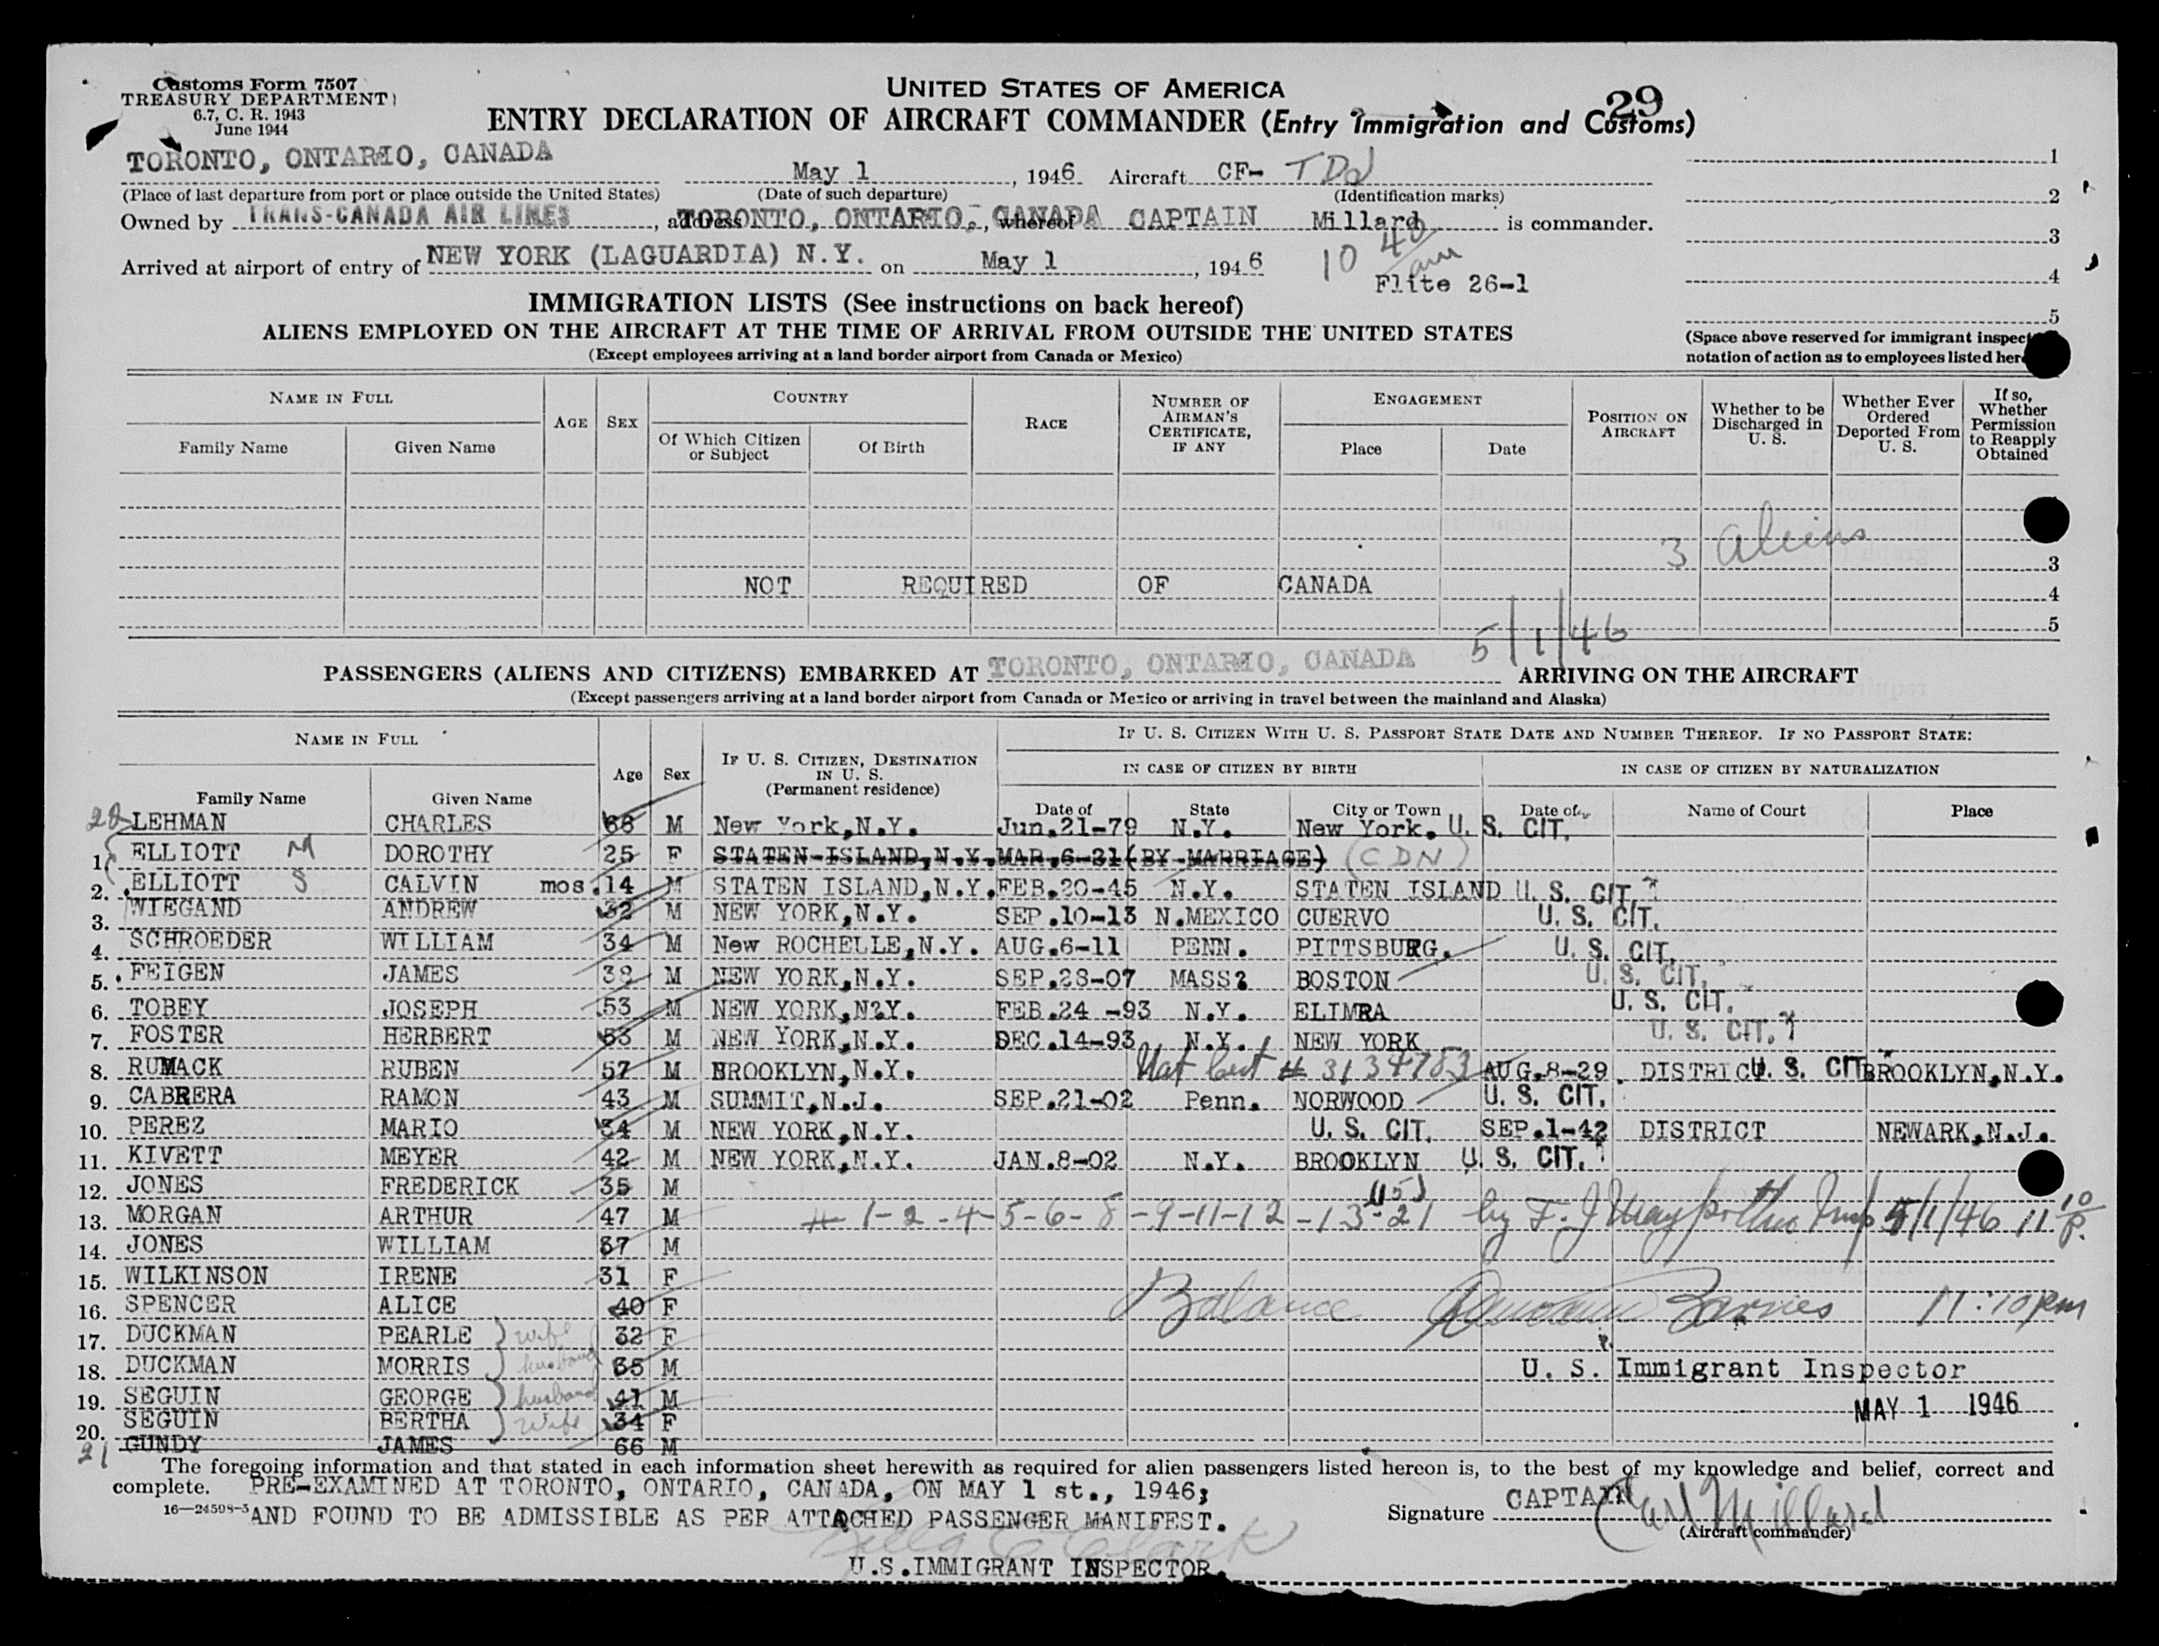 Customs Form 7507
TREASURY DEPARTMENT
6.7, C. R. 1943
June 1944
UNITED STATES OF AMERICA
29
ENTRY DECLARATION OF AIRCRAFT COMMANDER (Entry Immigration and Customs)
TORONTO, ONTARIO, CANADA May 1, 1946 Aircraft CF-
(Place of last departure from port or place outside the United States) (Date of such departure) (Identification marks)
Owned by TRANS-CANADA AIR LINES, address TORONTO, ONTARIO, CANADA, whereof CAPTAIN Millard is commander.
Arrived at airport of entry of NEW YORK (LAGUARDIA) N.Y. on May 1, 1946 10 40 am
Flite 26-1
1
2
3
4
5
(Space above reserved for immigrant inspect
notation of action as to employees listed her
IMMIGRATION LISTS (See instructions on back hereof)
ALIENS EMPLOYED ON THE AIRCRAFT AT THE TIME OF ARRIVAL FROM OUTSIDE THE UNITED STATES
(Except employees arriving at a land border airport from Canada or Mexico)
NAME IN FULL AGE SEX COUNTRY RACE NUMBER OF AIRMAN'S CERTIFICATE, IF ANY ENGAGEMENT POSITION ON AIRCRAFT Whether to be Discharged in U. S. Whether Ever Ordered Deported From U. S. If so, Whether Permission to Reapply Obtained
Family Name Given Name Of Which Citizen or Subject Of Birth Place Date
3 aliens
3
NOT REQUIRED OF CANADA 4
5
5/1/46
PASSENGERS (ALIENS AND CITIZENS) EMBARKED AT TORONTO, ONTARIO, CANADA ARRIVING ON THE AIRCRAFT
(Except passengers arriving at a land border airport from Canada or Mexico or arriving in travel between the mainland and Alaska)
NAME IN FULL Age Sex IF U. S. CITIZEN, DESTINATION IN U. S. (Permanent residence) IF U. S. CITIZEN WITH U. S. PASSPORT STATE DATE AND NUMBER THEREOF. IF NO PASSPORT STATE:
IN CASE OF CITIZEN BY BIRTH IN CASE OF CITIZEN BY NATURALIZATION
Family Name Given Name Date of State City or Town Date of Name of Court Place
LEHMAN CHARLES 66 M New York,N.Y. Jun.21-79 N.Y. New York. U. S. CIT.
1. ELLIOTT M DOROTHY 25 F STATEN-ISLAND,N.Y.MAR.6-21(BY-MARRIAGE) (CDN)
2. ELLIOTT S CALVIN mos.14 M STATEN ISLAND,N.Y.FEB.20-45 N.Y. STATEN ISLAND U. S. CIT.
3. WIEGAND ANDREW 32 M NEW YORK,N.Y. SEP.10-13 N.MEXICO CUERVO U. S. CIT.
4. SCHROEDER WILLIAM 34 M New ROCHELLE,N.Y. AUG.6-11 PENN. PITTSBURG. U. S. CIT.
5. FEIGEN JAMES 38 M NEW YORK,N.Y. SEP.28-07 MASS? BOSTON U. S. CIT.
6. TOBEY JOSEPH 53 M NEW YORK,N?Y. FEB.24 -93 N.Y. ELIMRA U. S. CIT.
7. FOSTER HERBERT 53 M NEW YORK,N.Y. DEC.14-93 N.Y. NEW YORK U. S. CIT.
8. RUMACK RUBEN 57 M BROOKLYN,N.Y. Nat Cert # 3134783 AUG.8-29 DISTRICT U. S. CIT. BROOKLYN,N.Y.
9. CABRERA RAMON 43 M SUMMIT,N.J. SEP.21-02 Penn. NORWOOD U. S. CIT.
10. PEREZ MARIO 34 M NEW YORK,N.Y. U. S. CIT. SEP.1-42 DISTRICT NEWARK,N.J.
11. KIVETT MEYER 42 M NEW YORK,N.Y. JAN.8-02 N.Y. BROOKLYN U. S. CIT.
12. JONES FREDERICK 35 M
13. MORGAN ARTHUR 47 M # 1-2-4-5-6-8-9-11-12-13-21 (15) by F. J. 5/1/46 11 10 P.
14. JONES WILLIAM 37 M
15. WILKINSON IRENE 31 F
16. SPENCER ALICE 40 F Balance Barnes 11:10pm
17. DUCKMAN PEARLE wife 32 F
18. DUCKMAN MORRIS husband 35 M U. S. Immigrant Inspector
19. SEGUIN GEORGE husband 41 M MAY 1 1946
20. SEGUIN BERTHA wife 34 F
21 GUNDY JAMES 66 M
The foregoing information and that stated in each information sheet herewith as required for alien passengers listed hereon is, to the best of my knowledge and belief, correct and
complete. PRE-EXAMINED AT TORONTO, ONTARIO, CANADA, ON MAY 1 st., 1946;
16—24598-3 AND FOUND TO BE ADMISSIBLE AS PER ATTACHED PASSENGER MANIFEST.
Signature CAPTAIN Carl Millard
(Aircraft commander)
Clark
U.S.IMMIGRANT INSPECTOR.